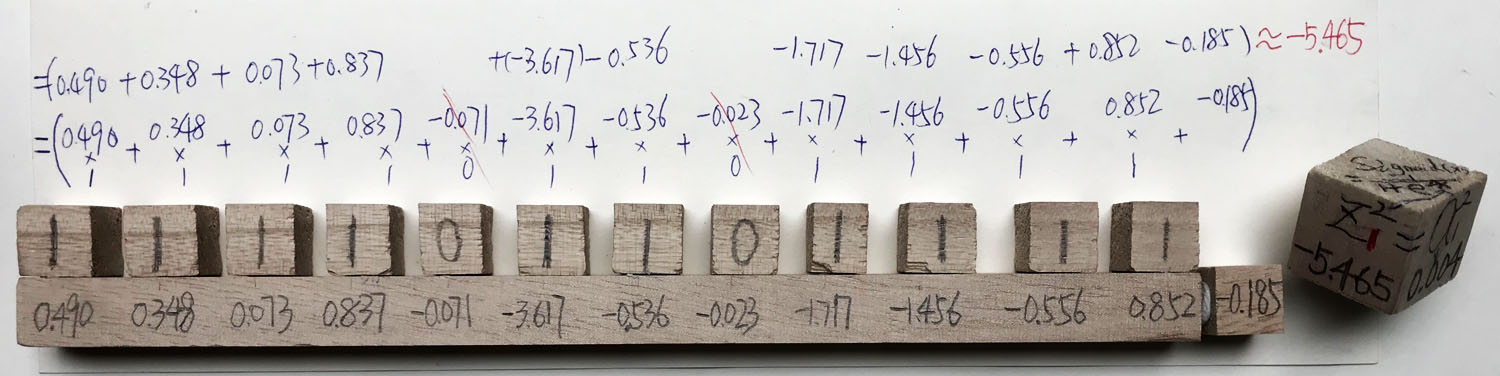 =(0.490 + 0.348 + 0.073 + 0.837 +(-3.617) - 0.536 -1.717 -1.456 -0.556 + 0.852 -0.185) ≈ -5.465
=(0.490 + 0.348 + 0.073 + 0.837 + -0.071 + -3.617 + -0.536 + -0.023 + -1.717 + -1.456 + -0.556 + 0.852 + -0.185)
× × × × × × × × × × × ×
1 1 1 1 0 1 1 0 1 1 1 1
1 1 1 1 0 1 1 0 1 1 1 1
0.490 0.348 0.073 0.837 -0.071 -3.617 -0.536 -0.023 -1.717 -1.456 -0.556 0.852 -0.185
z²₁ = a²
-5.465 0.004